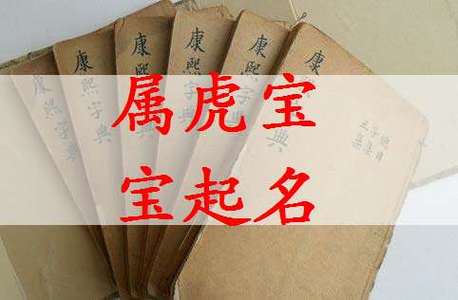 属虎宝
宝起名
康熙字典
康熙字典
康熙字典
康熙字典
康熙字典
康熙字典